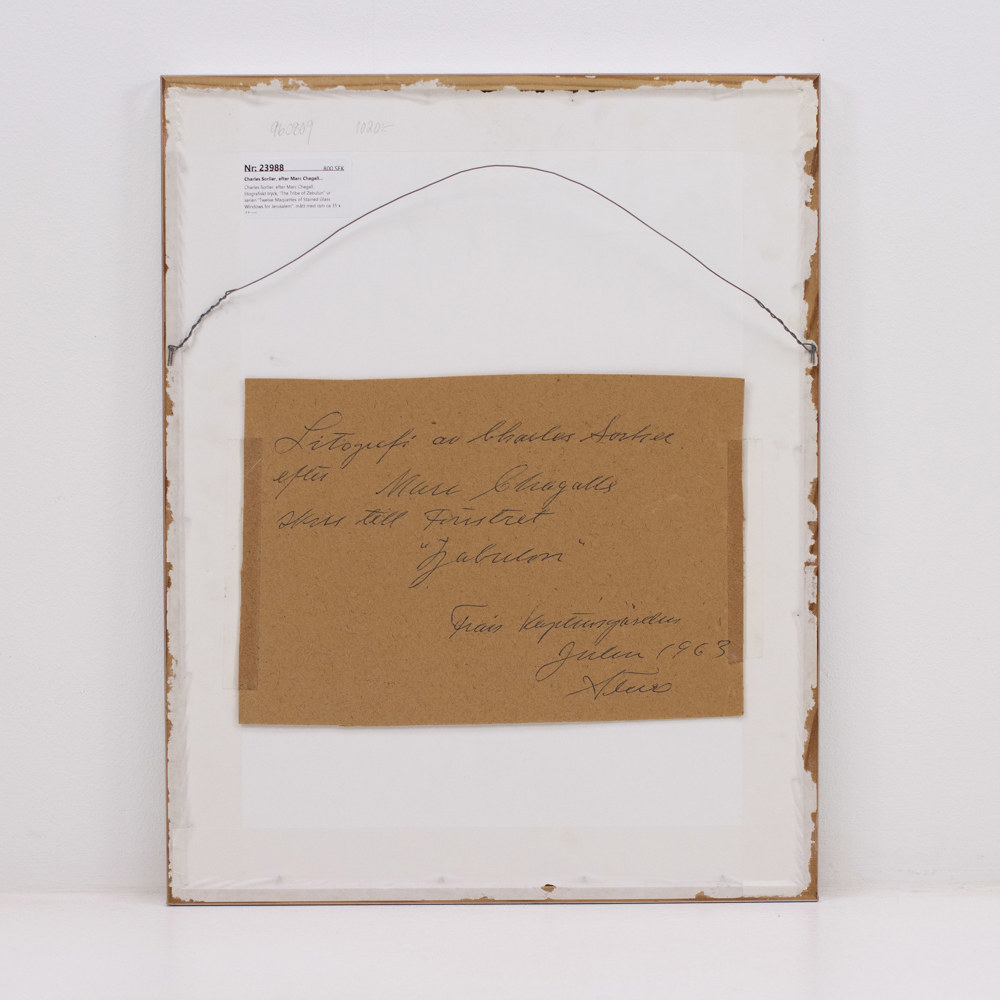 960809 1020:-
Nr: 23988 800 SEK
Charles Sorlier, after Marc Chagall...
Charles Sorlier, after Marc Chagall,
litografiskt tryck, "The Tribe of Zebulon" ur
serien "Twelve Maquettes of Stained Glass
Windows for Jerusalem", mått med ram ca 35 x
Litografi av Charles Sorlier
efter Marc Chagalls
skiss till fönstret
"Zabulon"
Från
Julen 1963